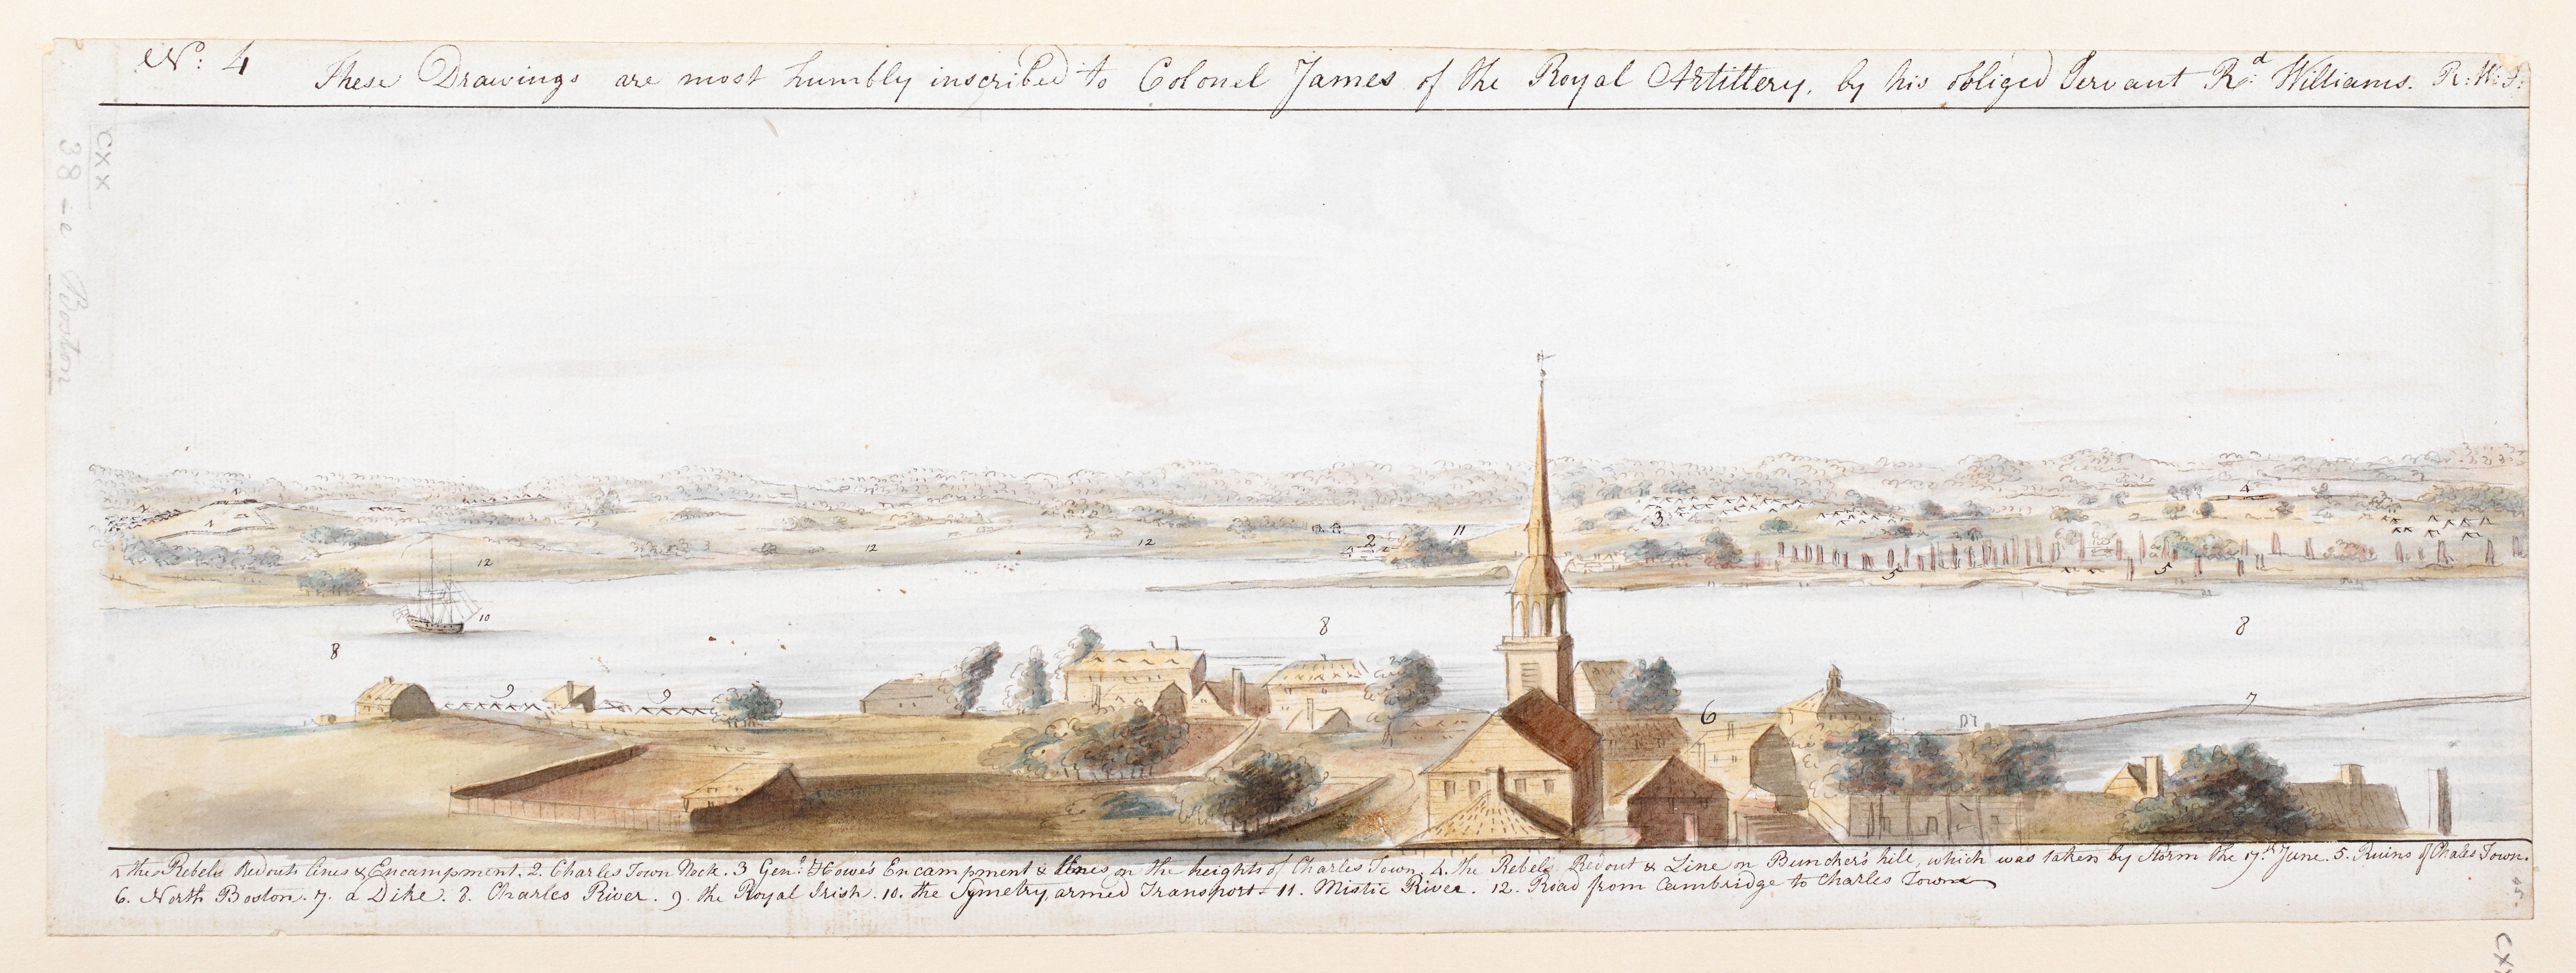 No: 4 These Drawings are most humbly inscribed to Colonel James of the Royal Artillery, by his obliged Servant Rd: Williams. R: W: F:
CXX
38-e Boston
1
1
1
4
3
11
2
12
12
12
5
5
10
8
8
8
9
9
7
6
1 the Rebels Redouts lines & Encampment. 2. Charles Town Neck. 3 Genl: Howe's Encampment & lines on the heights of Charles Town. 4. the Rebels Redout & Line on Buncker's hill, which was taken by storm the 17th June. 5. Ruins of Chales Town.
6. North Boston. 7. a Dike. 8. Charles River. 9. the Royal Irish. 10. the Symetry, armed Transport. 11. Mistic River. 12. Road from Cambridge to Charles Town
CX